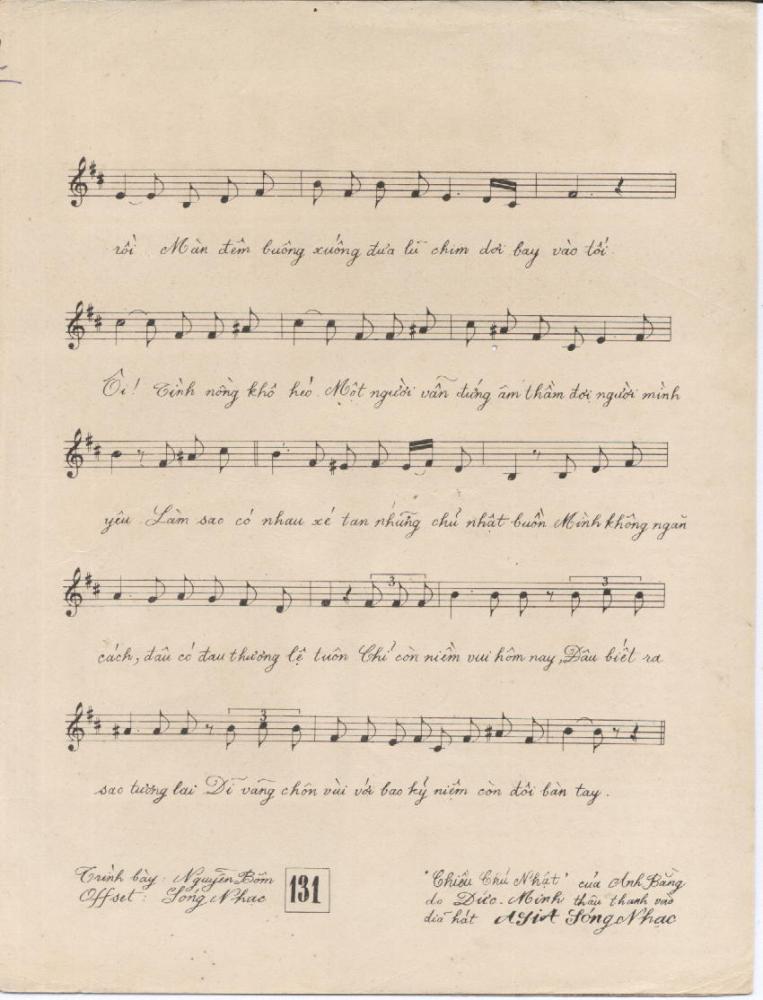 rồi Màn đêm buông xuống đưa lũ chim dơi bay vào tối.
Ôi! Tình nồng khô héo. Một người vẫn đứng âm thầm đợi người mình
yêu Làm sao có nhau xé tan những chủ nhật buồn Mình không ngăn
cách, đâu có đau thương lệ tuôn Chỉ còn niềm vui hôm nay, Đâu biết ra
3
3
sao tương lai Dĩ vãng chôn vùi với bao kỷ niệm còn đôi bàn tay.
3
Trình bày: Nguyễn Bốm
Offset: Sóng Nhạc
131
"Chiều Chủ Nhật" của Anh Bằng
do Đức-Minh thâu thanh vào
dĩa hát ASIA Sóng Nhạc